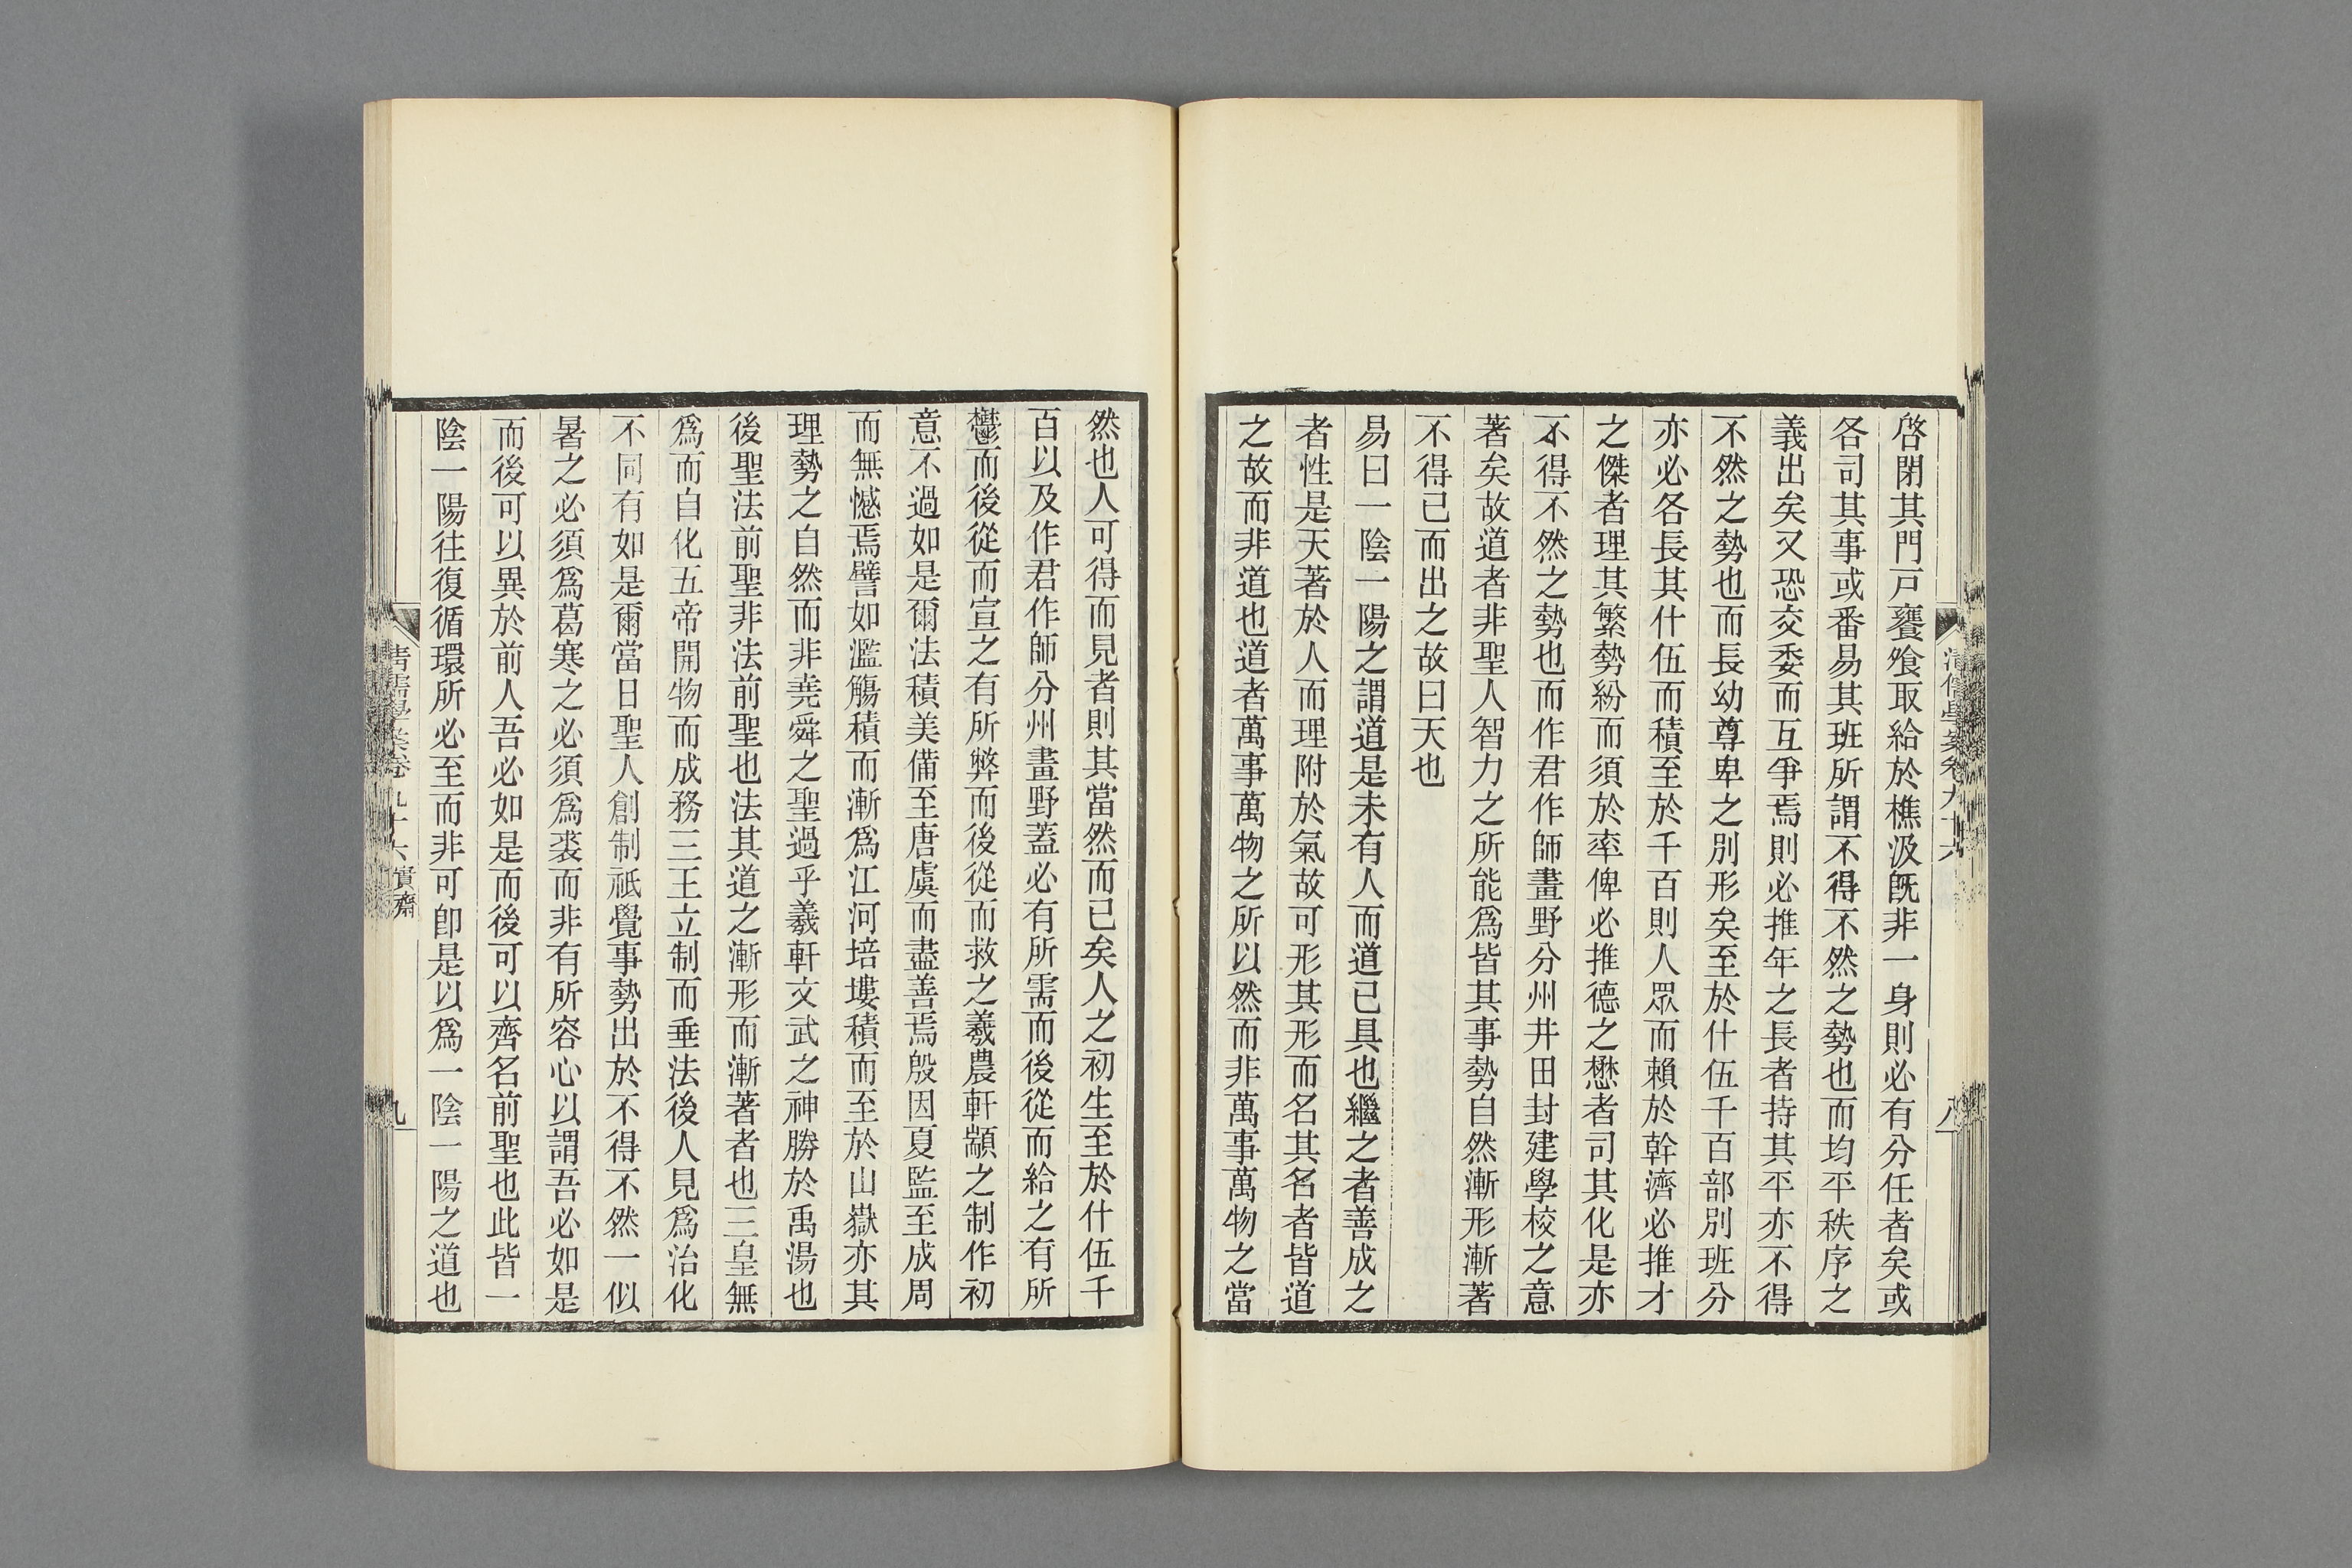 啓閉其門戸饔飧取給於樵汲旣非一身則必有分任者矣或
各司其事或番易其班所謂不得不然之勢也而均平秩序之
義出矣又恐交委而互爭焉則必推年之長者持其平亦不得
不然之勢也而長幼尊卑之別形矣至於什伍千百部別班分
亦必各長其什伍而積至於千百則人眾而賴於幹濟必推才
之傑者理其繁勢紛而須於率俾必推德之懋者司其化是亦
不得不然之勢也而作君作師畫野分州井田封建學校之意
著矣故道者非聖人智力之所能爲皆其事勢自然漸形漸著
不得已而出之故曰天也
易曰一陰一陽之謂道是未有人而道已具也繼之者善成之
者性是天著於人而理附於氣故可形其形而名其名者皆道
之故而非道也道者萬事萬物之所以然而非萬事萬物之當
清儒學案卷九十六
八
然也人可得而見者則其當然而已矣人之初生至於什伍千
百以及作君作師分州畫野蓋必有所需而後從而給之有所
鬱而後從而宣之有所弊而後從而救之羲農軒顓之制作初
意不過如是爾法積美備至唐虞而盡善焉殷因夏監至成周
而無憾焉譬如濫觴積而漸爲江河培塿積而至於山嶽亦其
理勢之自然而非堯舜之聖過乎羲軒文武之神勝於禹湯也
後聖法前聖非法前聖也法其道之漸形而漸著者也三皇無
爲而自化五帝開物而成務三王立制而垂法後人見爲治化
不同有如是爾當日聖人創制祇覺事勢出於不得不然一似
暑之必須爲葛寒之必須爲裘而非有所容心以謂吾必如是
而後可以異於前人吾必如是而後可以齊名前聖也此皆一
陰一陽往復循環所必至而非可卽是以爲一陰一陽之道也
清儒學案卷九十六 實齋
九